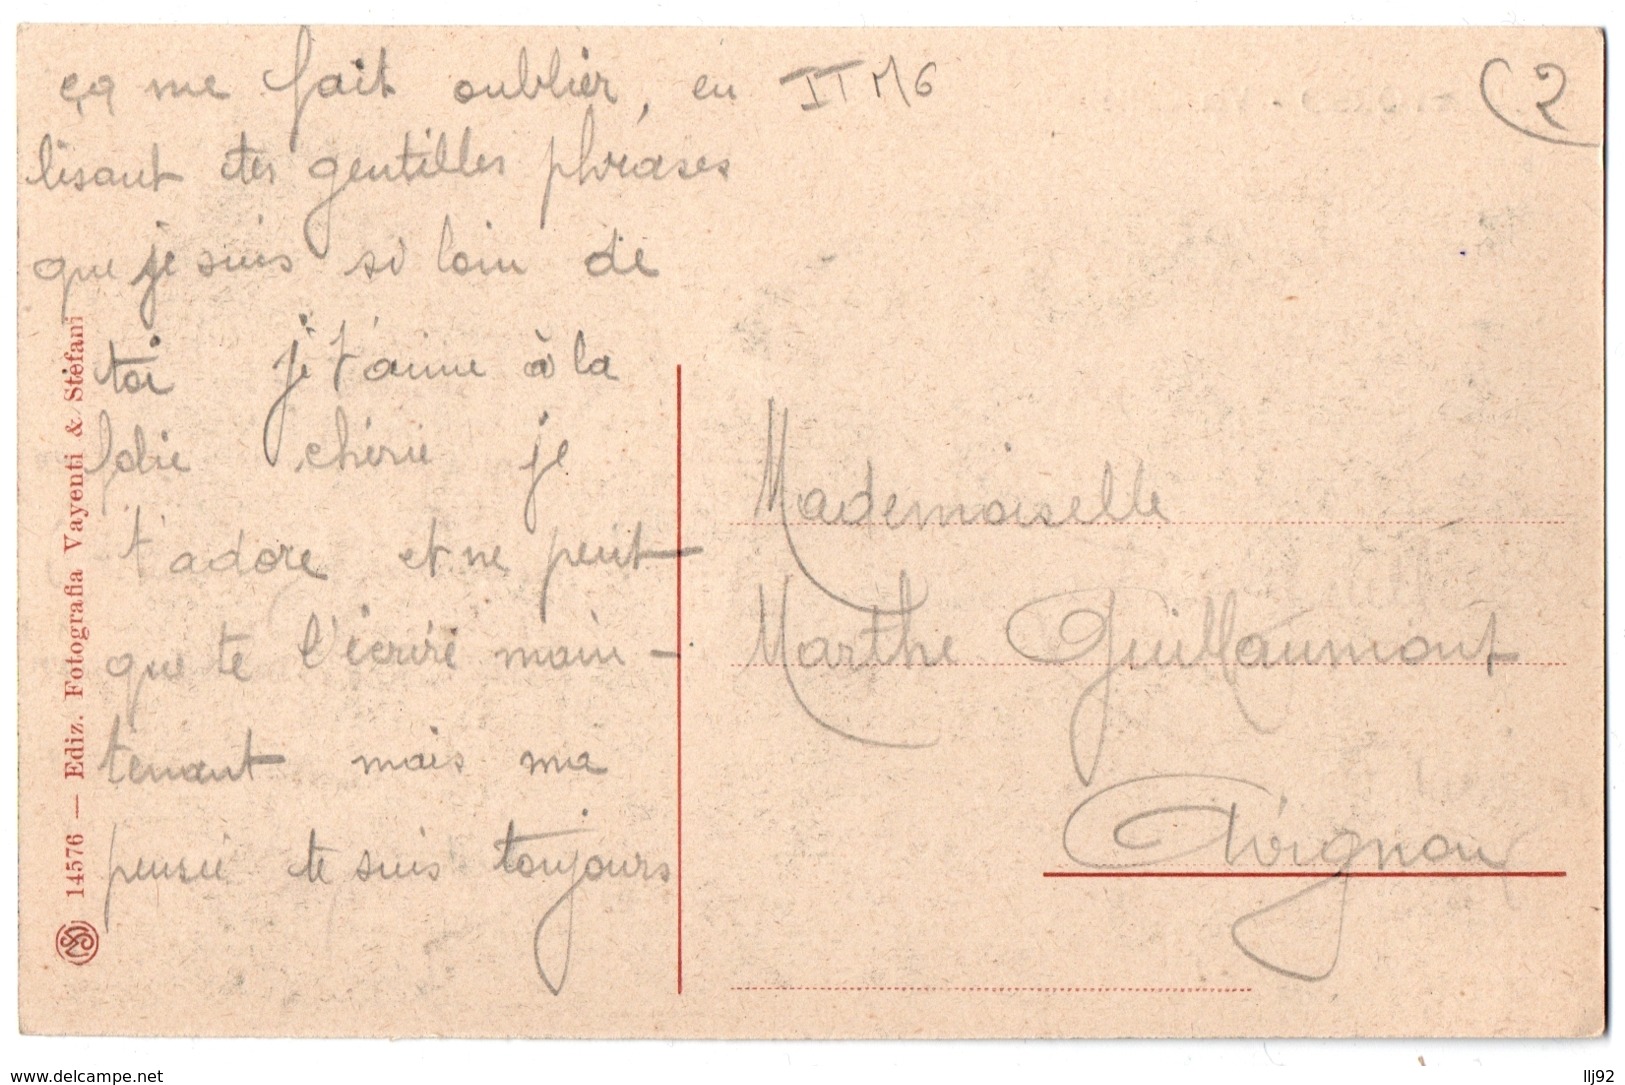 ça me fait oublier, en
lisant tes gentilles phrases
que je suis si loin de
toi je t'aime à la
folie chérie je
t'adore et ne peut
que te l'écrire main-
tenant mais ma
pensée te suis toujours
IT M6
2
Mademoiselle
Marthe Guillaumont
Avignon
14576 — Ediz. Fotografia Vayenti & Stefani
www.delcampe.net
llj92